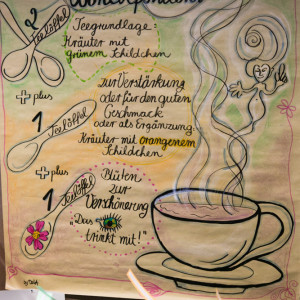 2 Teelöffel
Teegrundlage:
Kräuter mit
grünem Schildchen
plus
1 Teelöffel
zur Verstärkung
oder für den guten
Geschmack
oder als Ergänzung
Kräuter mit orangenem
Schildchen
plus
1 Teelöffel
Blüten
zur
Verschönerung
„Das
trinkt mit!"